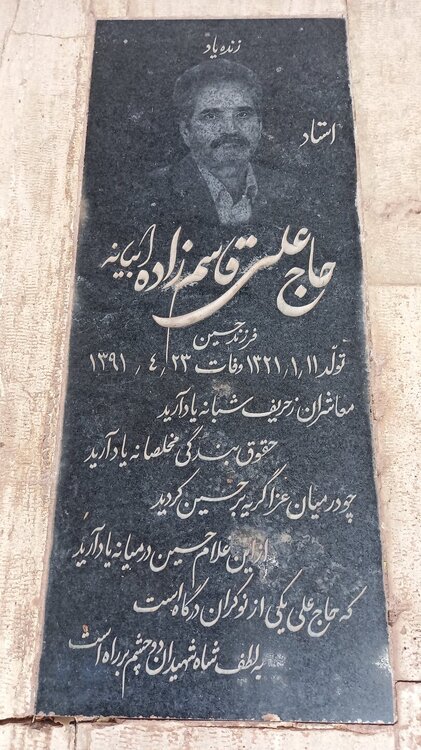 زنده یاد
استاد
حاج علی قاسم زاده ابیانه
فرزند حسین
تولد ۱۳۲۱/۱/۱۱ وفات ۱۳۹۱/۴/۲۳
معاشران ز حریف شبانه یاد آرید
حقوق بندگی مخلصانه یاد آرید
چو در میان عزا گریه بر حسین کردید
از این غلام حسین در میانه یاد آرید
که حاج علی یکی از نوکران درگاه است
به لطف شاه شهیدان دو چشم بر راه است